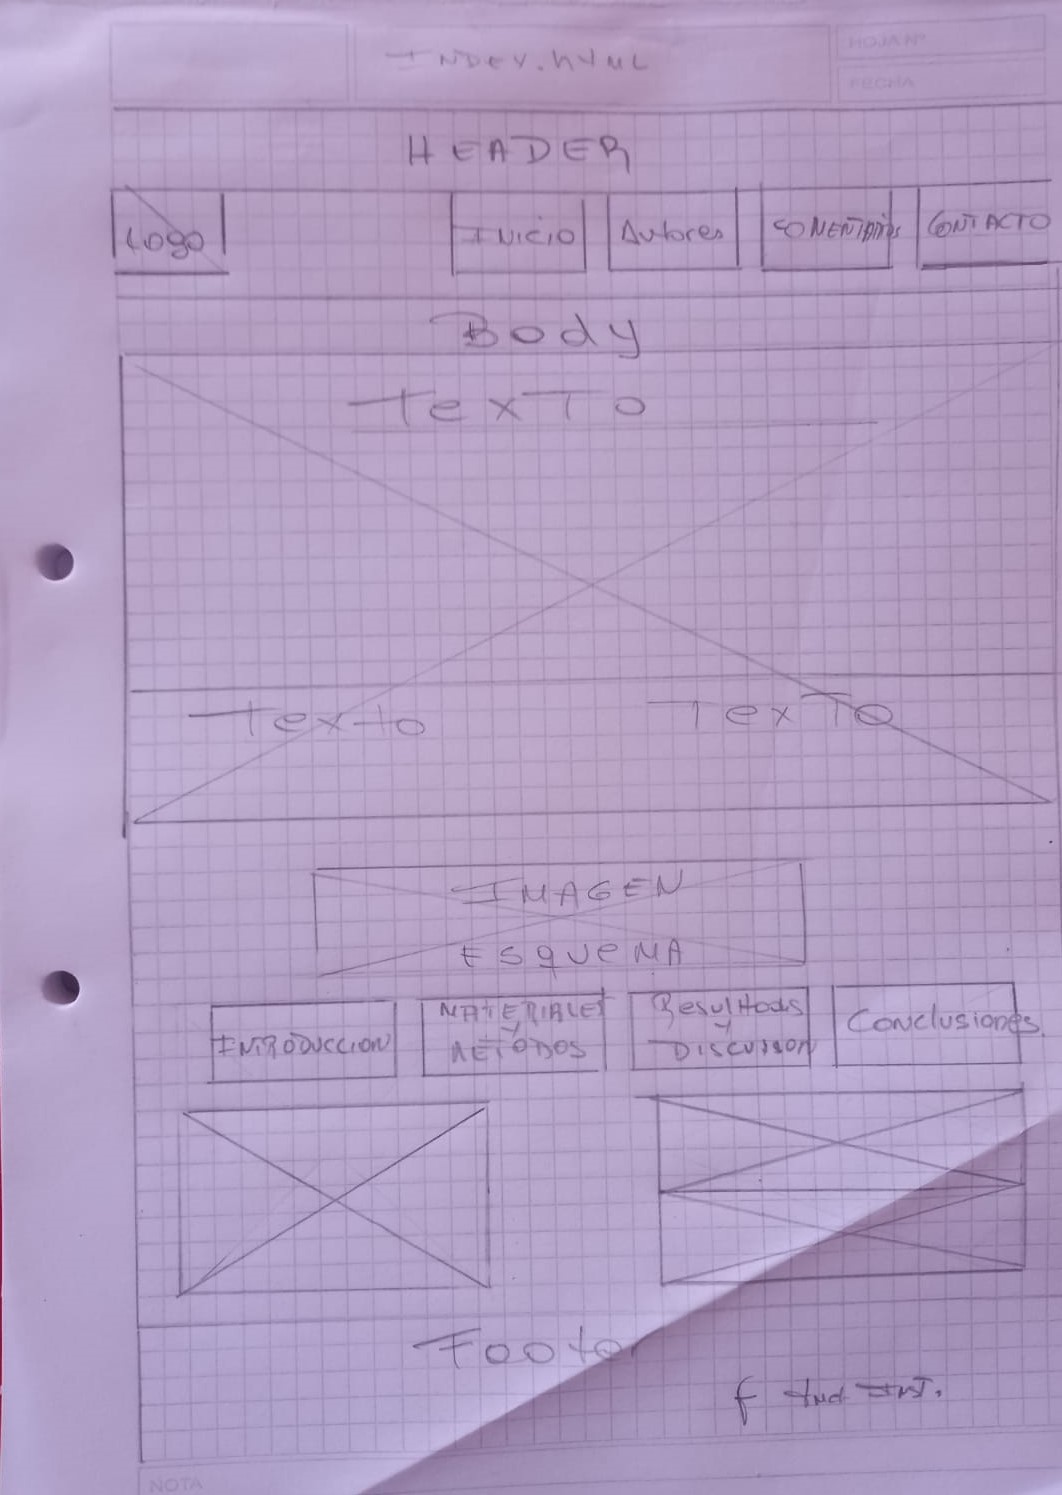 INDEX.HTML
HOJA Nº
FECHA
HEADER
Logo
INICIO
Autores
COMENTARIOS
CONTACTO
Body
TexTo
Texto
TexTo
IMAGEN
ESQUEMA
INTRODUCCION
MATERIALES
Y
METODOS
Resultados
Y
DISCUSION
Conclusiones
Footer
f
INST.
NOTA